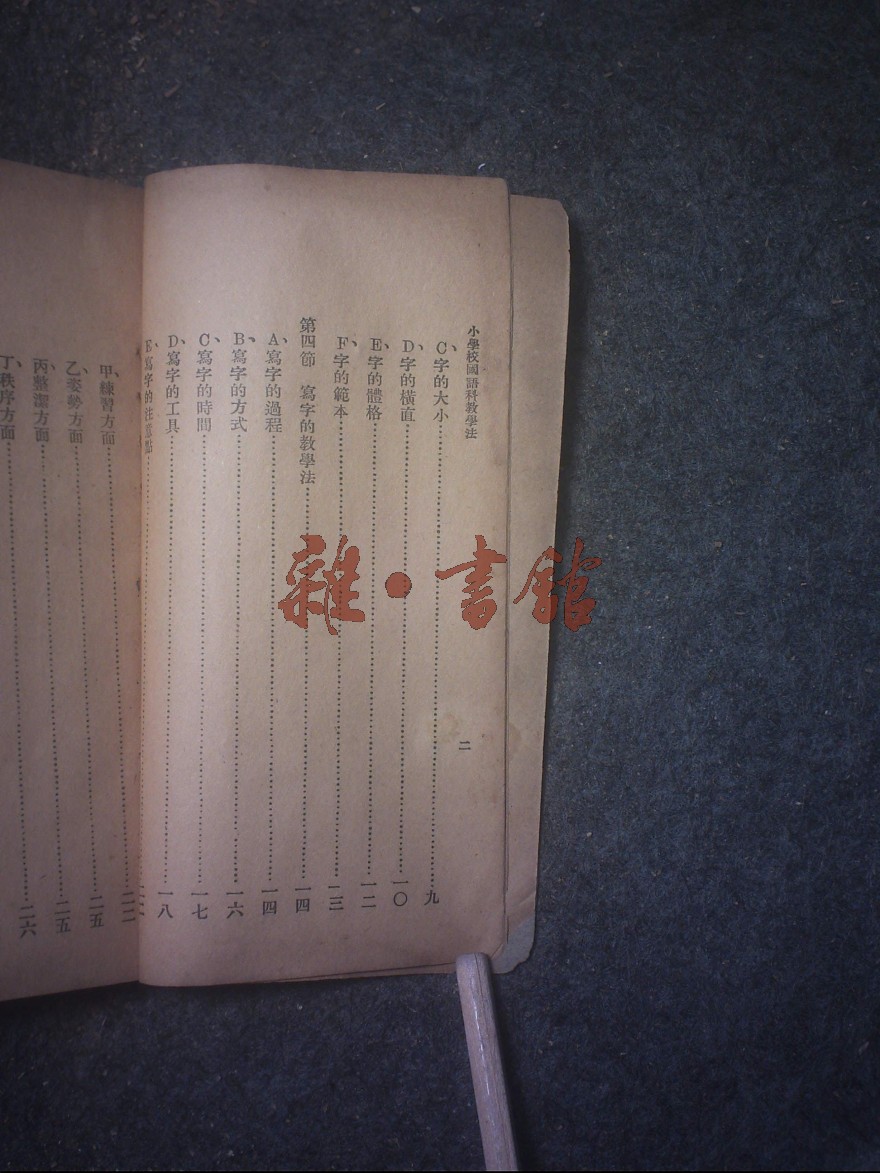 小學校國語科教學法
二
C、字的大小……九
D、字的橫直……一〇
E、字的體格……一二
F、字的範本……一三
第四節 寫字的教學法……一四
A、寫字的過程……一四
B、寫字的方式……一六
C、寫字的時間……一七
D、寫字的工具……一八
E、寫字的注意點……二二
甲、練習方面……二二
乙、姿勢方面……二五
丙、整潔方面……二五
丁、秩序方面……二六
雜·書館